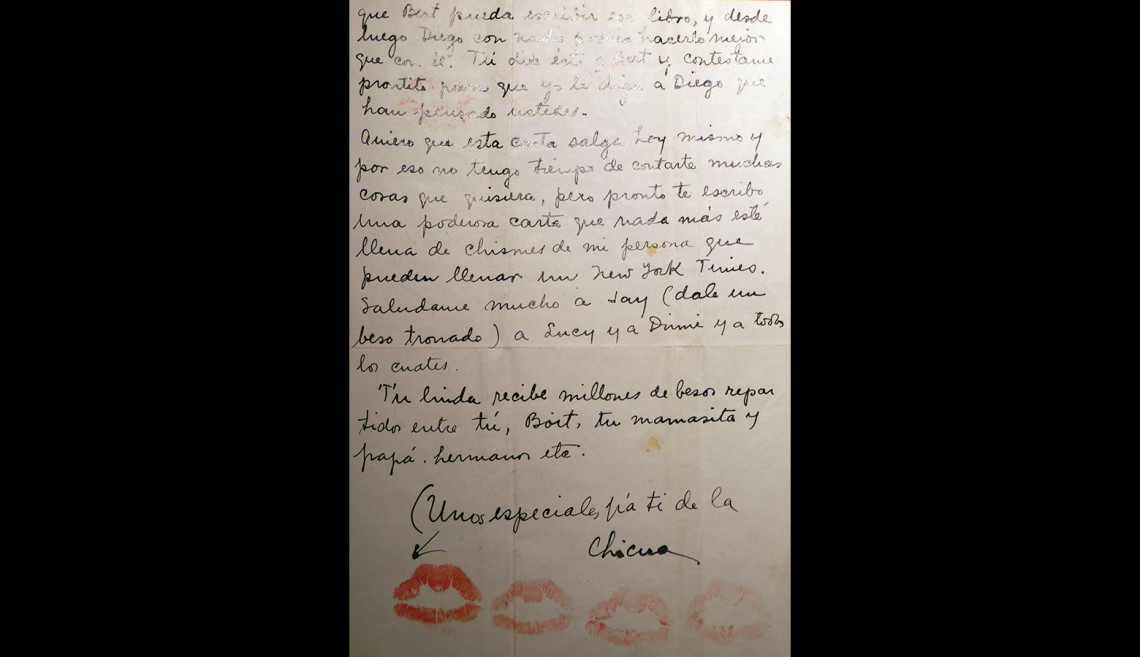 que Bert pueda escribir ese libro, y desde
luego Diego con nadie podría hacerlo mejor
que con él. Tú dile ésto a Bert y contestame
prontito para que yo le diga á Diego que
han pensado ustedes.
Quiero que esta carta salga hoy mismo y
por eso no tengo tiempo de contarte muchas
cosas que quisiera, pero pronto te escribo
una poderosa carta que nada más esté
llena de chismes de mi persona que
pueden llenar un New York Times.
Saludame mucho a Jay (dale un
beso tronado) a Lucy y a Dimi y a todos
los cuates.
Tú linda recibe millones de besos repar
tidos entre tú, Boit, tu mamasita y
papá. hermanos etc.
(Unos especiales pa ti de la
Chicua